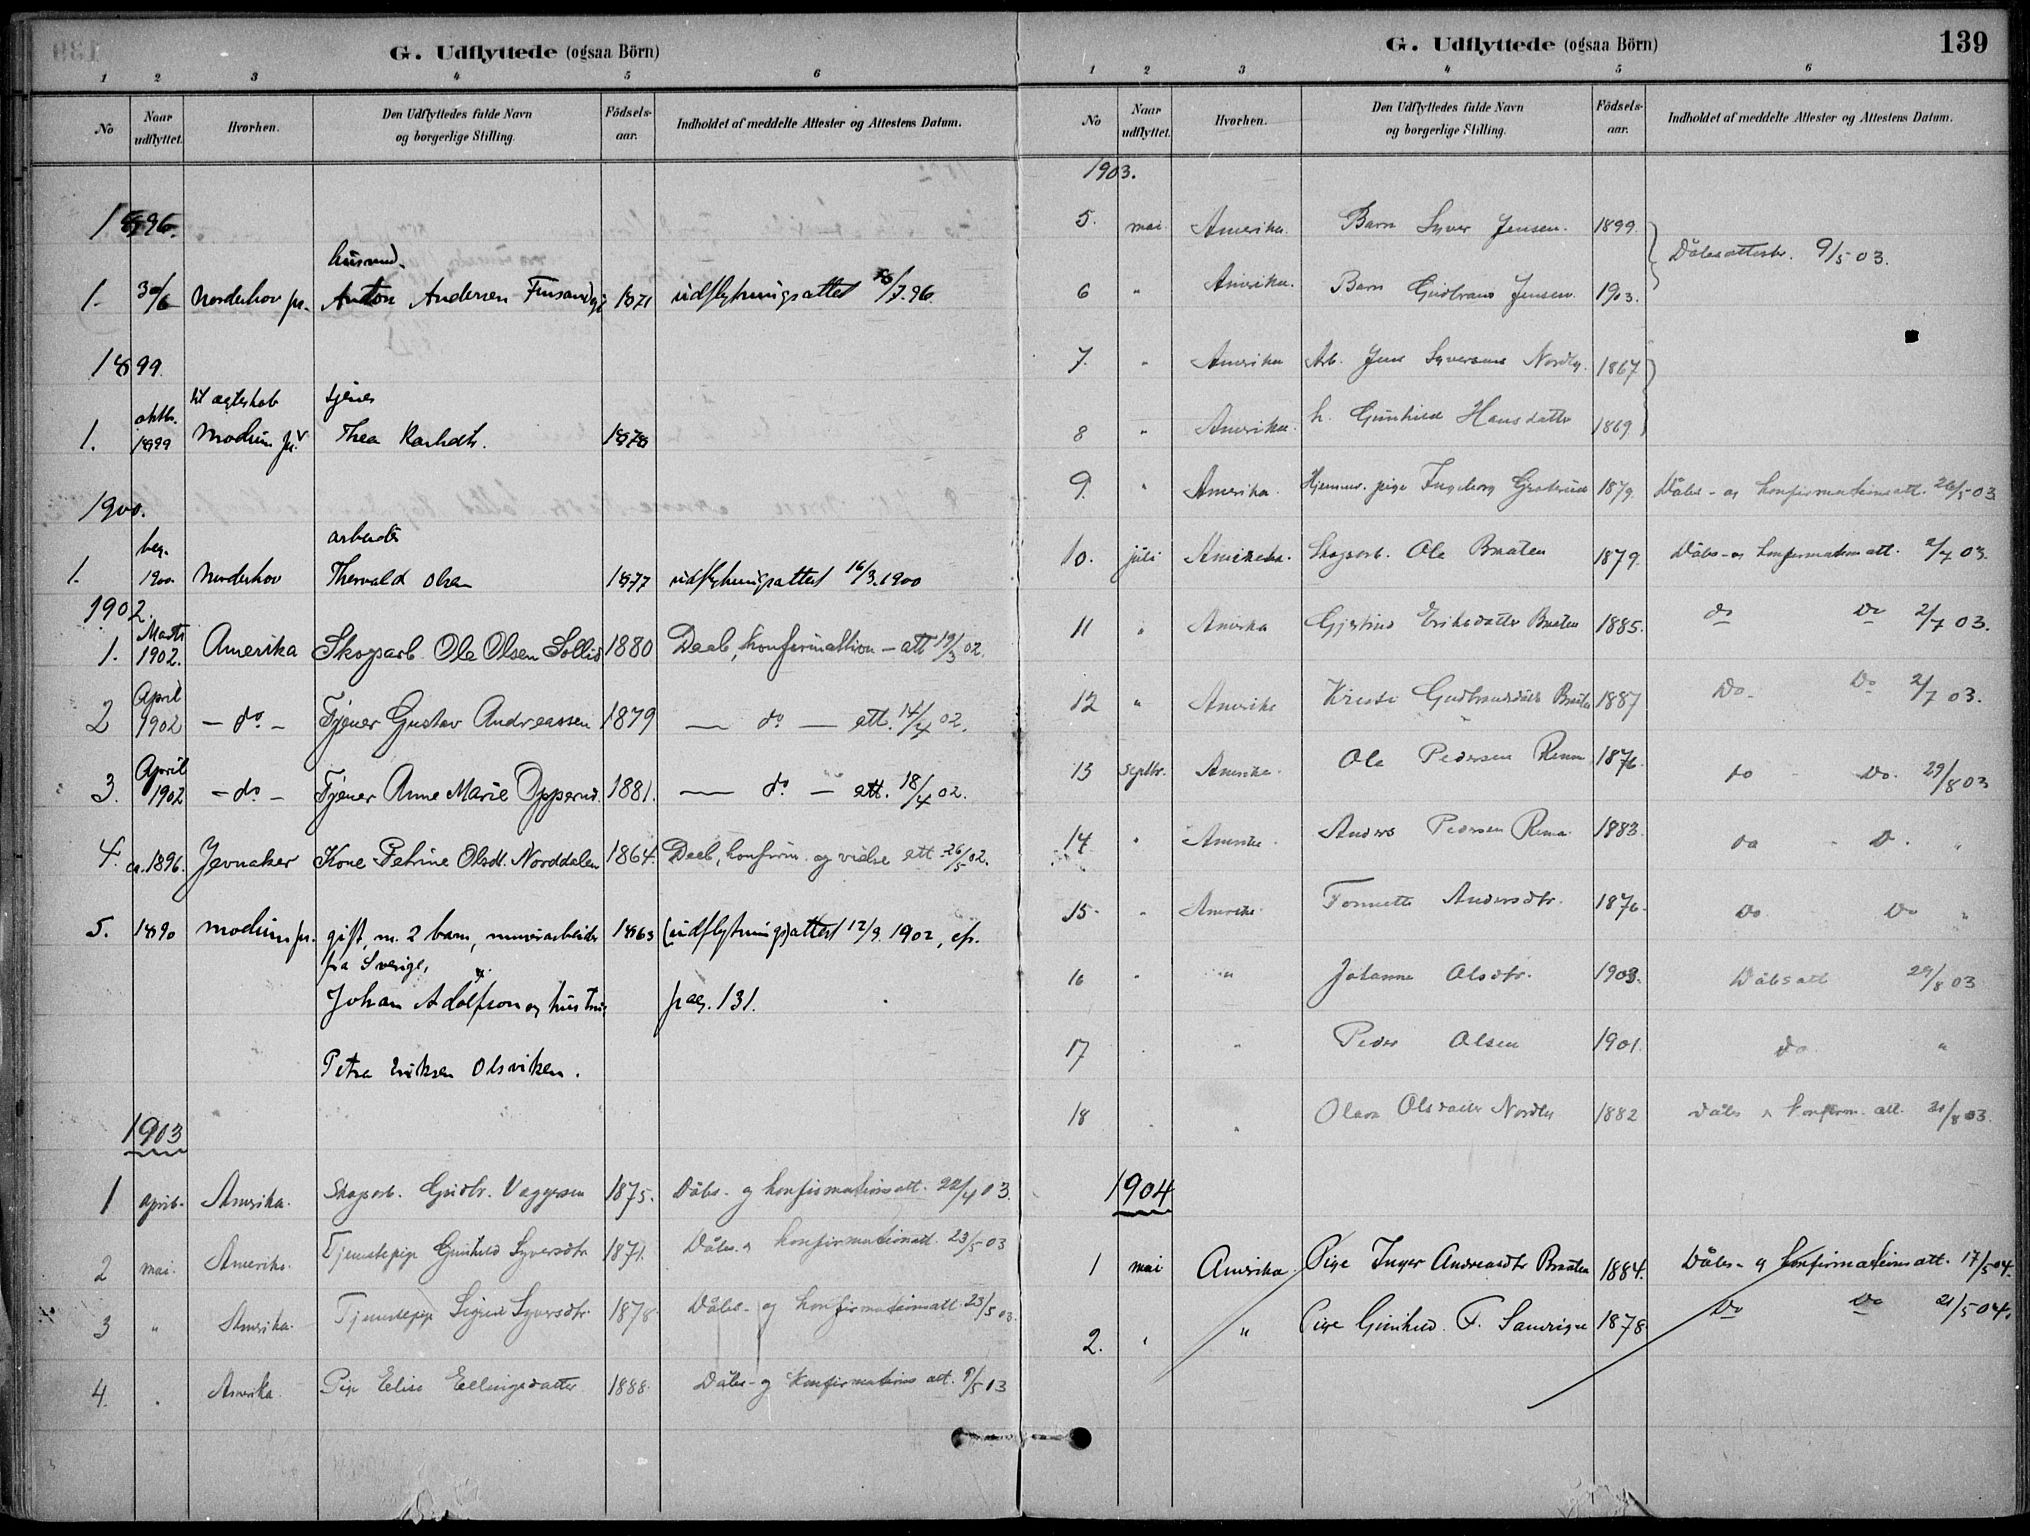 G. Udflyttede (ogsaa Börn)
1 2 3 4 5 6
No Naar udflyttet. Hvorhen. Den Udflyttedes fulde Navn og borgerlige Stilling. Födsels-aar. Indholdet af meddelte Attester og Attestens Datum.
1896.
husmd.
1. 30/6 Norderhov pr. Anton Andersen 1871 udflytningsattest /7.96.
1899.
til ægteskab tjenes
1. oktbr. 1899 Modum pr. Thea Karlsdtr. 1878
1900.
arbeider
1. beg. 1900 Norderhov Thorvald Olsen 1877 udflytningsattest 16/3.1900
1902.
1. Marts 1902. Amerika Skogsarb. Ole Olsen Sollid 1880 Daab, konfirmation - att 19/3 02.
2 April 1902 - do - Tjener Gustav Andreassen 1879 — do — att. 14/4 02.
3. April 1902 - do - Tjener Anne Marie Opperud. 1881. — do — att. 18/4 02.
4. ca. 1896. Jevnaker Kone Petrine Olsdt. Norddalen 1864. Daab, konfirm. og vielse att 26/5 02.
5. 1890 Modum pr. gift, m. 2 barn, murerarbeider 1863 (udflytnings)attest 12/9. 1902, cfr.
fra Sverige,
Johan Adolfson og hustru pag. 131.
Petra Eriksen Olsviken.
1903
1 april. Amerika. Skogsarb. Gudbr. 1875. Dåbs- og konfirmationsatt. 22/4 03.
2 mai. Amerika. Tjenestepige Gunhild Syversdtr 1871. Dåbs- og konfirmationsatt. 23/5 03
3 " Amerika. Tjenestepige Sigrid Syversdtr. 1878 Dåbs- og konfirmationsatt 23/5 03.
4. " Amerika. Pige Elise Ellingsdatter 1888. Dåbs- og konfirmations att. 9/5 03
G. Udflyttede (ogsaa Börn) 139
1 2 3 4 5 6
No Naar udflyttet. Hvorhen. Den Udflyttedes fulde Navn og borgerlige Stilling. Födsels-aar. Indholdet af meddelte Attester og Attestens Datum.
1903.
5. mai Amerika. Barn Syver Jensen. 1899.
Dåbsattester. 9/5 03.
6 " Amerika. Barn Gudbrand Jensen. 1903.
7. " Amerika Arb. Jens Syversens Nordby. 1867
8 " Amerika. h. Gunhild Hansdatter 1869.
9. " Amerika. Hjemmev. pige Ingeborg 1879. Dåbs- og konfirmationsatt. 26/5 03.
10. juli Amerika. Skogsarb. Ole Braaten 1879. Dåbs- og konfirmations att. 2/7 03.
11 " Amerika Gjertrud Eriksdatter Braaten 1885. do Do 2/7 03.
12 " Amerika Kristi Gudbrandsdatt. Braaten 1887 Do. Do 2/7 03.
13 septbr. Amerika. Ole Pedersen 1876. do - Do. 29/8 03
14 " Amerika. Anders Pedersen 1883. do - D. "
15. " Amerika. Andersdtr. 1876. Do Do "
16 " " Johanne Olsdtr. 1903. Dåbsatt 29/8 03
17 " " Peder Olsen 1901. do "
18 " " Olava Olsdatter Nordby 1882 Dåbs & konfirm. att. 31/8 03.
1904
1 mai Amerika. Pige Inger Andreasdtr Braaten 1884. Dåbs- og konfirmationsatt. 17/5 04.
2. " " Pige Gunhild F. 1878. Do Do 21/5 04.